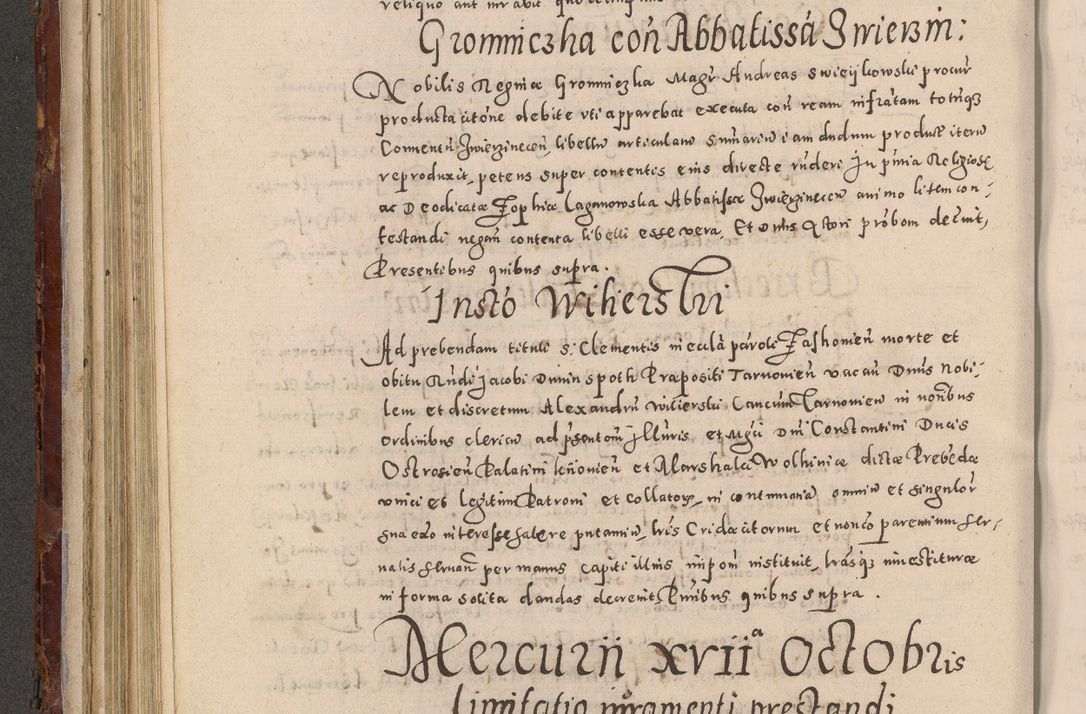 Gromniczha coń Abbatissá Zwierzin:
Nobilis Reginæ Gromniczka Magr Andreas Swieijkowski procur
producta citōne debite uti apparebat executa coń ream infratam totiusq
Conventu Zwierzinecen, libellu articulatu sumariu iam dudum product iteru
reproduxit, petens super contentis eius directe rnderi In pnia Religiosę
ac Deodicatæ Zophiæ Laganowska Abbatissæ Zwierzinecen animo litem con-
testandi negań contenta libelli esse vera, Et Dnus Actori probōm decrevit,
Presentibus quibus supra.
Instō Wilierski
Ad prebendam tituli S: Clementis in ecclā parōli Zaslavien morte et
obitu Rndi Jacobi Dninspoth Præpositi Tarnovien vacań Dnus Nobi-
lem et discretum Alexandrū Wilierski Cancum Tarnovien in noribus
ordinibus clericu ad pśentōm Illuris et Mgci Dni Constantini Ducis
Ostrosień Palatini Kiiovien et Marshalci Wolhiniæ dictæ Prebēdæ
unici et legitimi Patroni et Collatoris, in contumaciā omniu et singulor
sua exo interesse habere putantiu, lris Cridæ citorum et non cō parentium ser-
vatis servań per manus capiti illius impoń instituit, lrasq investituræ
in forma solita dandas decrevit Pntibus quibus supra.
Mercurii xviiª Octobris
Limitatio iuramenti prestandi